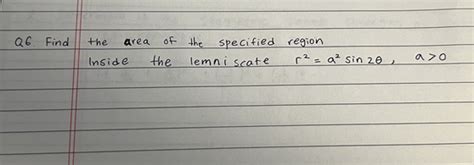 Q6 Find the area of the specified region
Inside the lemniscate r² = a² sin 2θ, a>0